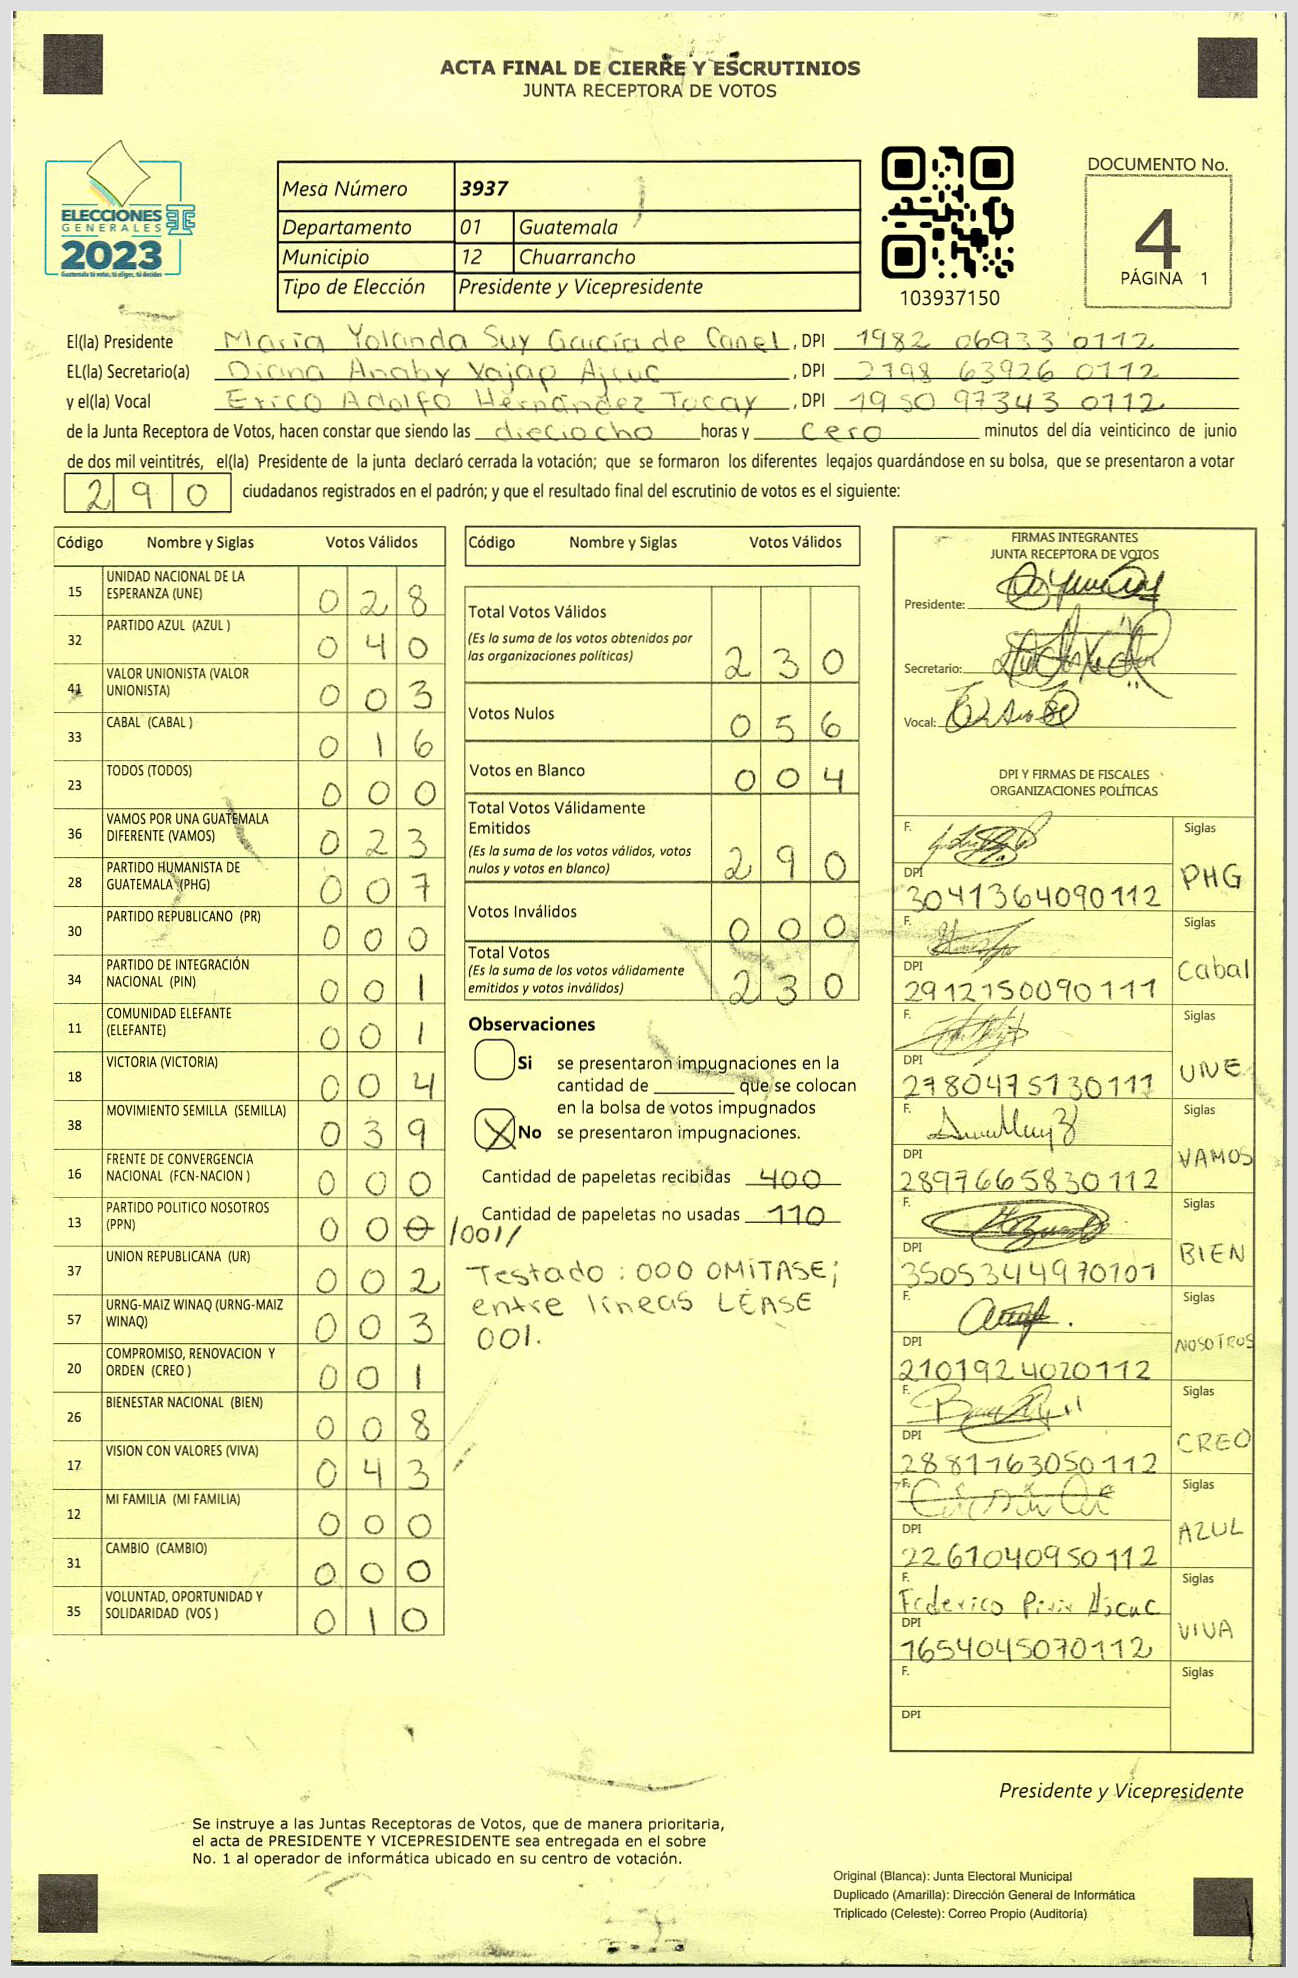 ACTA FINAL DE CIERRE Y ESCRUTINIOS
JUNTA RECEPTORA DE VOTOS
ELECCIONES
GENERALES
2023
Guatemala tú votas, tú eliges, tú decides
Mesa Número 3937
Departamento 01 Guatemala
Municipio 12 Chuarrancho
Tipo de Elección Presidente y Vicepresidente
103937150
DOCUMENTO No.
4
PÁGINA 1
El(la) Presidente María Yolanda Suy García de Canel, DPI 1982 06933 0112
EL(la) Secretario(a) Diana Anaby Xajap Ajcuc, DPI 2798 63926 0112
y el(la) Vocal Erico Adolfo Hernández Tocay, DPI 1950 97343 0112
de la Junta Receptora de Votos, hacen constar que siendo las dieciocho horas y cero minutos del día veinticinco de junio
de dos mil veintitrés, el(la) Presidente de la junta declaró cerrada la votación; que se formaron los diferentes legajos guardándose en su bolsa, que se presentaron a votar
290 ciudadanos registrados en el padrón; y que el resultado final del escrutinio de votos es el siguiente:
Código Nombre y Siglas Votos Válidos
15 UNIDAD NACIONAL DE LA ESPERANZA (UNE) 028
32 PARTIDO AZUL (AZUL ) 040
41 VALOR UNIONISTA (VALOR UNIONISTA) 003
33 CABAL (CABAL ) 016
23 TODOS (TODOS) 000
36 VAMOS POR UNA GUATEMALA DIFERENTE (VAMOS) 023
28 PARTIDO HUMANISTA DE GUATEMALA (PHG) 007
30 PARTIDO REPUBLICANO (PR) 000
34 PARTIDO DE INTEGRACIÓN NACIONAL (PIN) 001
11 COMUNIDAD ELEFANTE (ELEFANTE) 001
18 VICTORIA (VICTORIA) 004
38 MOVIMIENTO SEMILLA (SEMILLA) 039
16 FRENTE DE CONVERGENCIA NACIONAL (FCN-NACION ) 000
13 PARTIDO POLITICO NOSOTROS (PPN) 000 /001//
37 UNION REPUBLICANA (UR) 002
57 URNG-MAIZ WINAQ (URNG-MAIZ WINAQ) 003
20 COMPROMISO, RENOVACION Y ORDEN (CREO ) 001
26 BIENESTAR NACIONAL (BIEN) 008
17 VISION CON VALORES (VIVA) 043
12 MI FAMILIA (MI FAMILIA) 000
31 CAMBIO (CAMBIO) 000
35 VOLUNTAD, OPORTUNIDAD Y SOLIDARIDAD (VOS ) 010
Código Nombre y Siglas Votos Válidos
Total Votos Válidos
(Es la suma de los votos obtenidos por
las organizaciones políticas) 230
Votos Nulos 056
Votos en Blanco 004
Total Votos Válidamente
Emitidos
(Es la suma de los votos válidos, votos
nulos y votos en blanco) 290
Votos Inválidos 000
Total Votos
(Es la suma de los votos válidamente
emitidos y votos inválidos) 230
Observaciones
Si se presentaron impugnaciones en la
cantidad de ________ que se colocan
en la bolsa de votos impugnados
X No se presentaron impugnaciones.
Cantidad de papeletas recibidas 400
Cantidad de papeletas no usadas 110
Testado: 000 OMITASE;
entre líneas LÉASE
001.
FIRMAS INTEGRANTES
JUNTA RECEPTORA DE VOTOS
Presidente:
Secretario:
Vocal:
DPI Y FIRMAS DE FISCALES
ORGANIZACIONES POLÍTICAS
F. Siglas
DPI 3041364090112 PHG
F. Siglas
DPI 2912150090111 Cabal
F. Siglas
DPI 2780475130111 UNE
F. Siglas
DPI 2897665830112 VAMOS
F. Siglas
DPI 3505344970101 BIEN
F. Siglas
DPI 2101924020112 NOSOTROS
F. Siglas
DPI 2881163050112 CREO
F. Siglas
DPI 2261040950112 AZUL
F. Federico Siglas
DPI 1654045070112 VIVA
F. Siglas
DPI
Presidente y Vicepresidente
Se instruye a las Juntas Receptoras de Votos, que de manera prioritaria,
el acta de PRESIDENTE Y VICEPRESIDENTE sea entregada en el sobre
No. 1 al operador de informática ubicado en su centro de votación.
Original (Blanca): Junta Electoral Municipal
Duplicado (Amarilla): Dirección General de Informática
Triplicado (Celeste): Correo Propio (Auditoría)